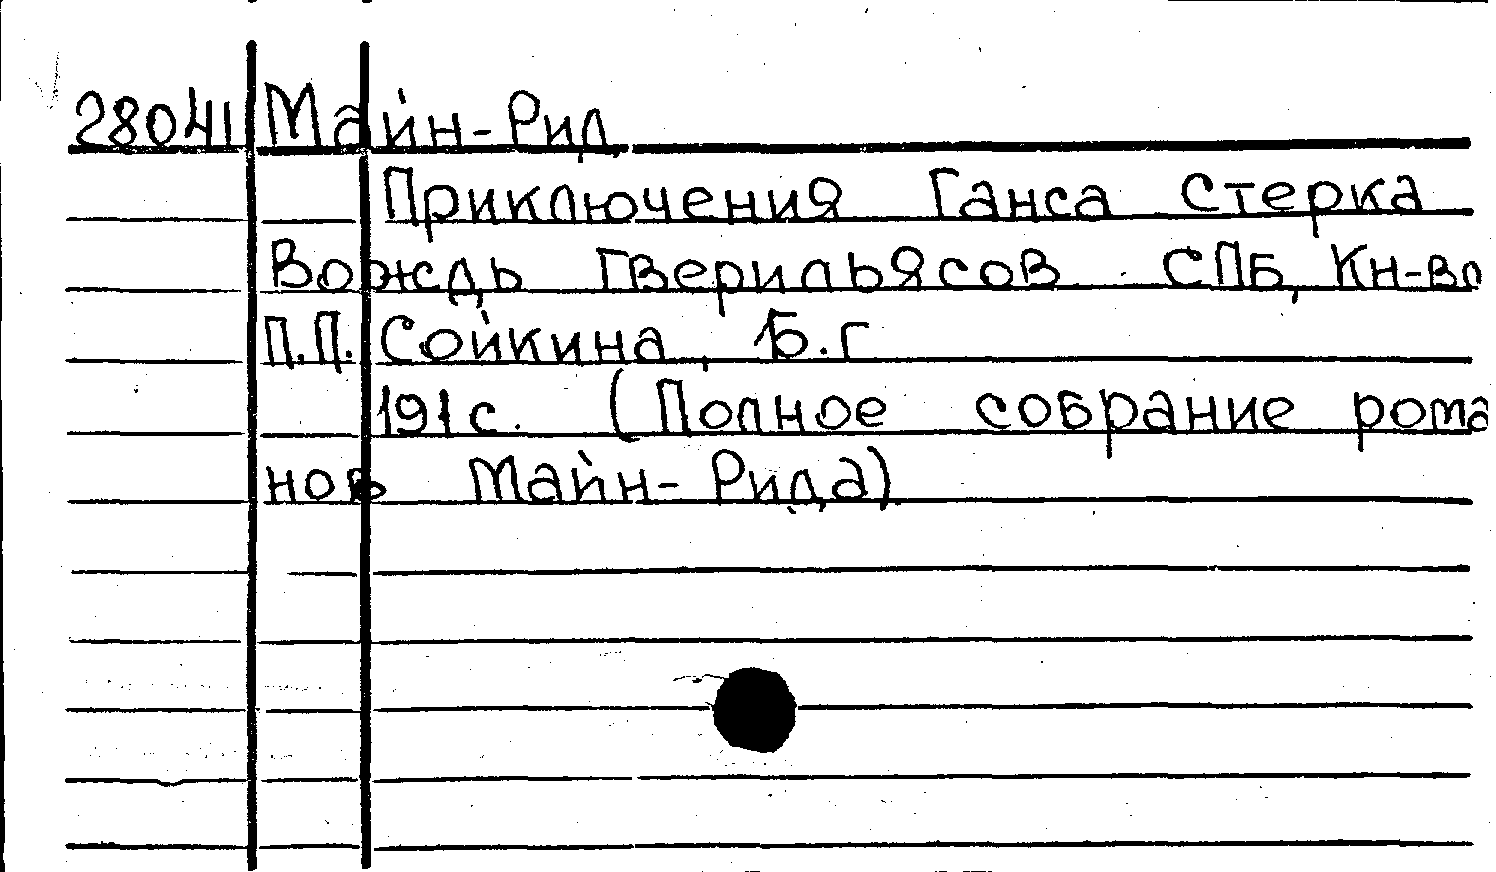 28041 Майн-Рид
Приключения Ганса Стерка
Вождь Гверильясов СПБ, Кн-во
П.П. Сойкина, Б.г
191с. (Полное собрание рома
нов Майн-Рида)